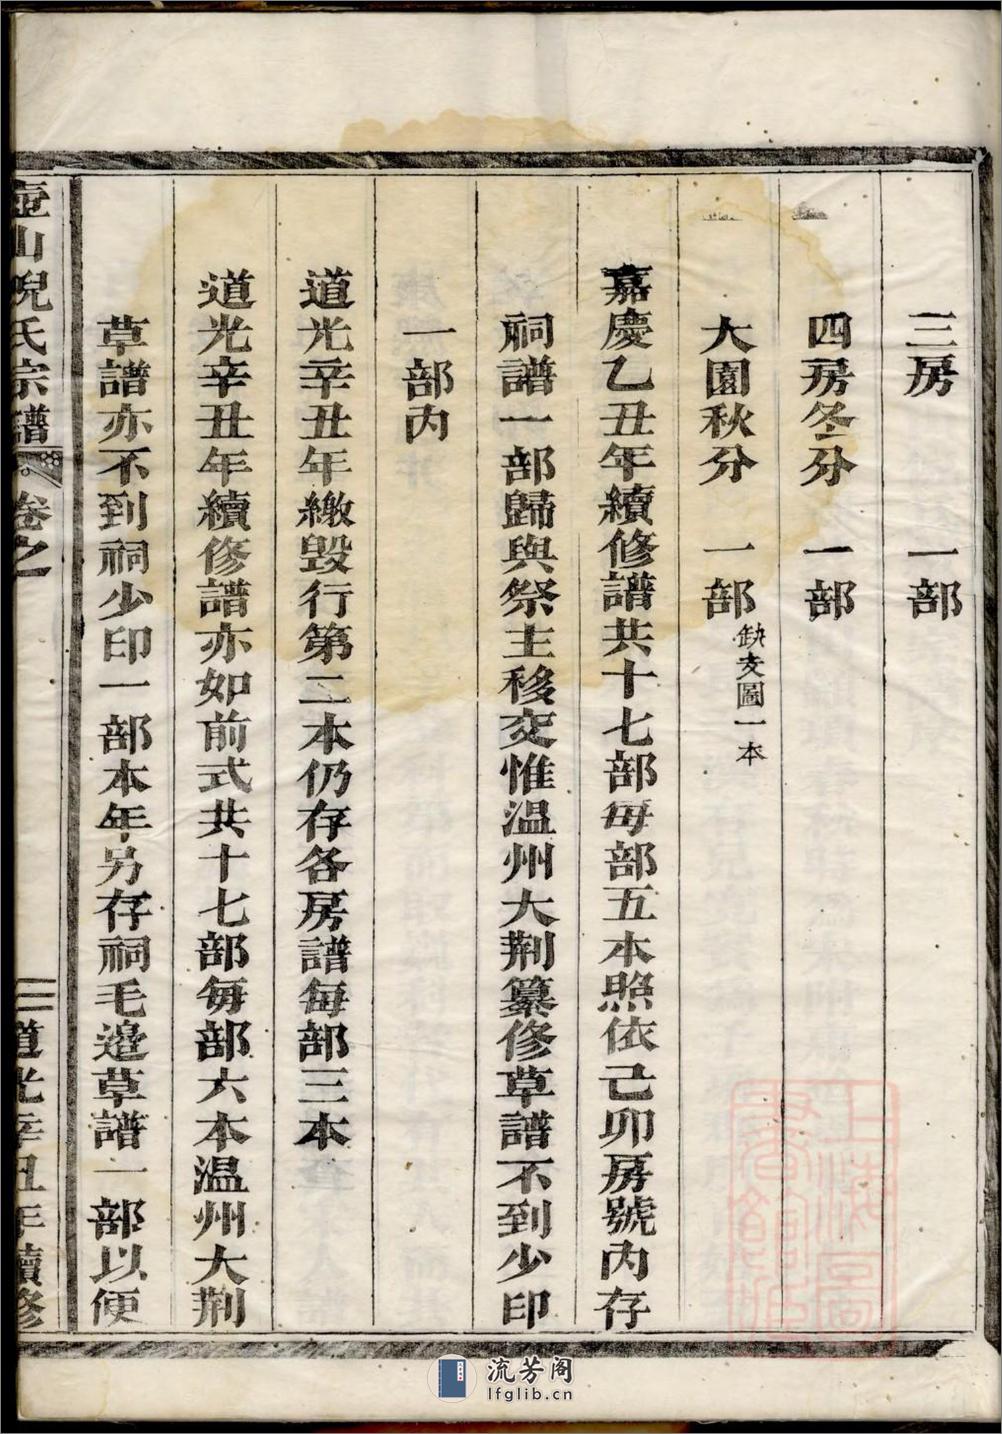 三房　一部
四房冬分　一部
大園秋分　一部 缺支圖一本
嘉慶乙丑年續修譜共十七部每部五本照依己卯房號內存
祠譜一部歸與祭主移交惟温州大荆纂修草譜不到少印
一部內
道光辛丑年繳毀行第二本仍存各房譜每部三本
道光辛丑年續修譜亦如前式共十七部每部六本温州大荆
草譜亦不到祠少印一部本年另存祠毛邉草譜一部以便
壶山倪氏宗譜 卷之一 二 道光辛丑年續修
流芳阁
lfglib.cn